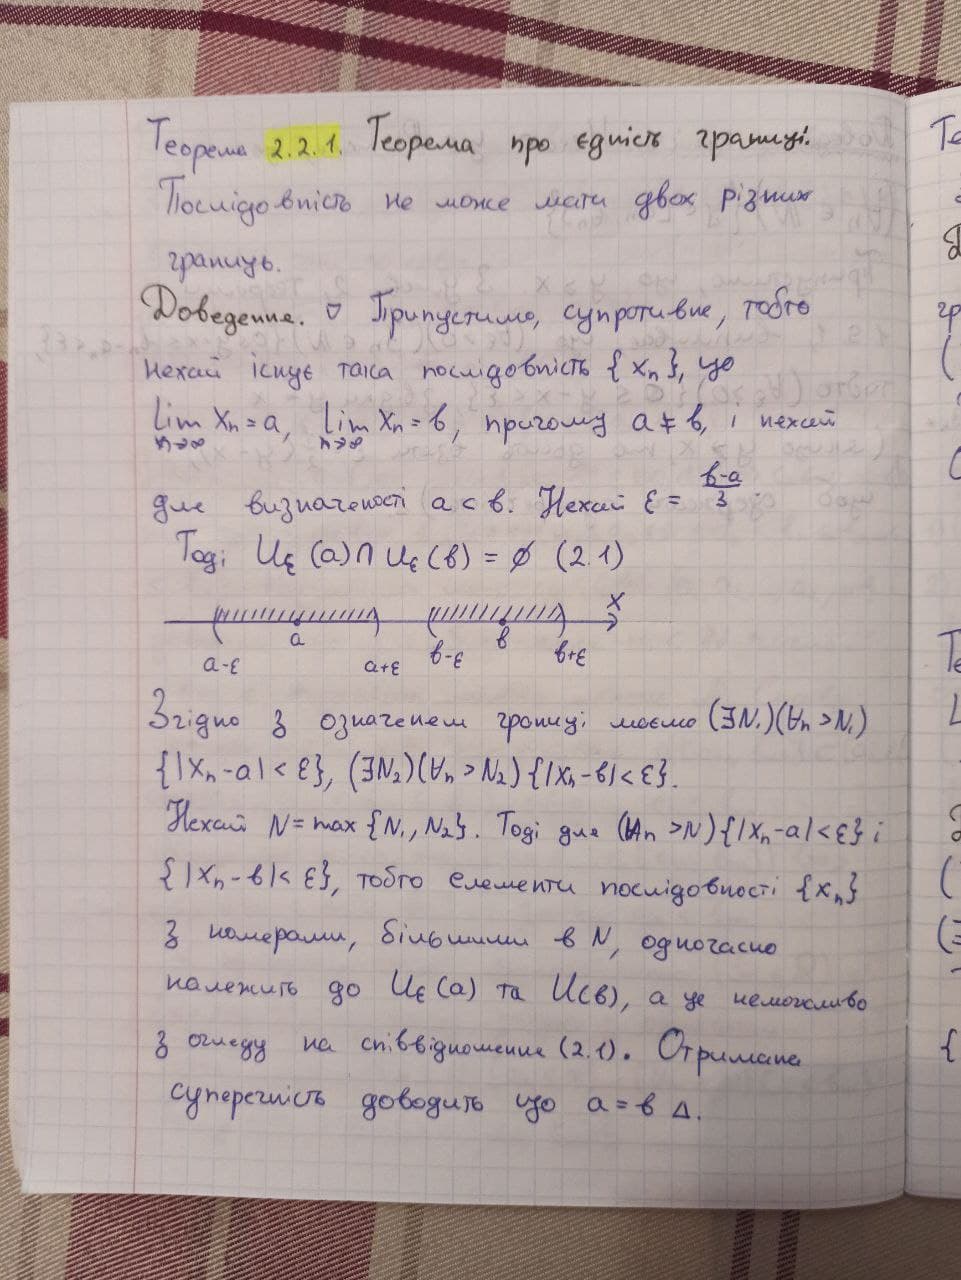 Теорема 2.2.1. Теорема про єдність границі.
Послідовність не може мати двох різних
границь.
Доведення. ▽ Припустимо, супротивне, тобто
нехай існує така послідовність {xₙ}, що
lim xₙ = a, lim xₙ = b, причому a ≠ b, і нехай
n→∞ n→∞
для визначеності a < b. Нехай ε = (b-a)/3.
Тоді Uε(a) ∩ Uε(b) = ∅ (2.1)
a b x
a-ε a+ε b-ε b+ε
Згідно з означенем границі маємо (∃N₁)(∀n > N₁)
{|xₙ - a| < ε}, (∃N₂)(∀n > N₂){|xₙ - b| < ε}.
Нехай N = max {N₁, N₂}. Тоді для (∀n > N){|xₙ - a| < ε} і
{|xₙ - b| < ε}, тобто елементи послідовності {xₙ}
з номерами, більшими в N, одночасно
належить до Uε(a) та U(b), а це неможливо
з огляду на співвідношення (2.1). Отримана
суперечність доводить що a = b Δ.
Те